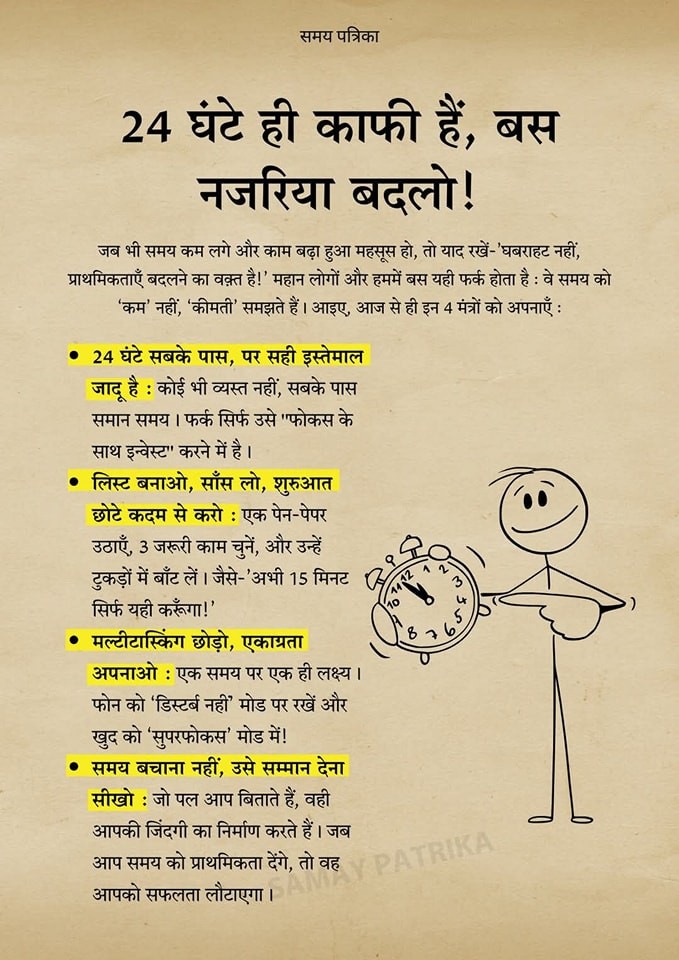 समय पत्रिका
24 घंटे ही काफी हैं, बस
नजरिया बदलो!
जब भी समय कम लगे और काम बढ़ा हुआ महसूस हो, तो याद रखें-'घबराहट नहीं,
प्राथमिकताएँ बदलने का वक़्त है!' महान लोगों और हममें बस यही फर्क होता है : वे समय को
'कम' नहीं, 'कीमती' समझते हैं। आइए, आज से ही इन 4 मंत्रों को अपनाएँ :
• 24 घंटे सबके पास, पर सही इस्तेमाल
जादू है : कोई भी व्यस्त नहीं, सबके पास
समान समय। फर्क सिर्फ उसे "फोकस के
साथ इन्वेस्ट" करने में है।
• लिस्ट बनाओ, साँस लो, शुरुआत
छोटे कदम से करो : एक पेन-पेपर
उठाएँ, 3 जरूरी काम चुनें, और उन्हें
टुकड़ों में बाँट लें। जैसे-'अभी 15 मिनट
सिर्फ यही करूँगा!'
• मल्टीटास्किंग छोड़ो, एकाग्रता
अपनाओ : एक समय पर एक ही लक्ष्य।
फोन को 'डिस्टर्ब नहीं' मोड पर रखें और
खुद को 'सुपरफोकस' मोड में!
• समय बचाना नहीं, उसे सम्मान देना
सीखो : जो पल आप बिताते हैं, वही
आपकी जिंदगी का निर्माण करते हैं। जब
आप समय को प्राथमिकता देंगे, तो वह
आपको सफलता लौटाएगा।
12 1 2 3 4 5 6 7 8 9 10 11
SAMAY PATRIKA